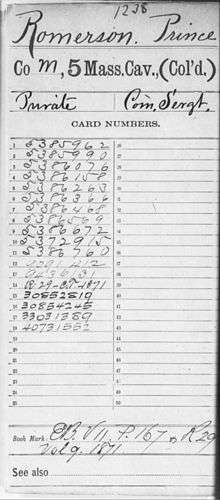 1238
Romerson. Prince
Co M, 5 Mass. Cav., (Col'd.)
Private Com. Sergt.
CARD NUMBERS.
1 5385962 26
2 5385990 27
3 5386076 28
4 5386158 29
5 5386263 30
6 5386366 31
7 5386468 32
8 5386569 33
9 5386672 34
10 5372915 35
11 5386760 36
12 37
13 38
14 R-29-CT-1871 39
15 30852819 40
16 30854245 41
17 33031389 42
18 40731552 43
19 44
20 45
21 46
22 47
23 48
24 49
25 50
Book Mark: P. 167, R 29
1871
See also